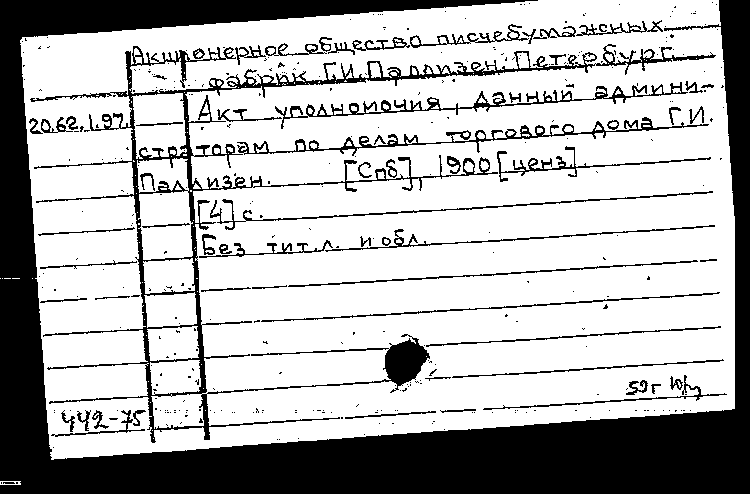 Акционерное общество писчебумажных
фабрик Г.И. Паллизен. Петербург.
20.62.1.97.
Акт уполномочия, данный админи-
страторам по делам торгового дома Г.И.
Паллизен. [Спб], 1900 [ценз].
[4] с.
Без тит.л. и обл.
442-75
59г